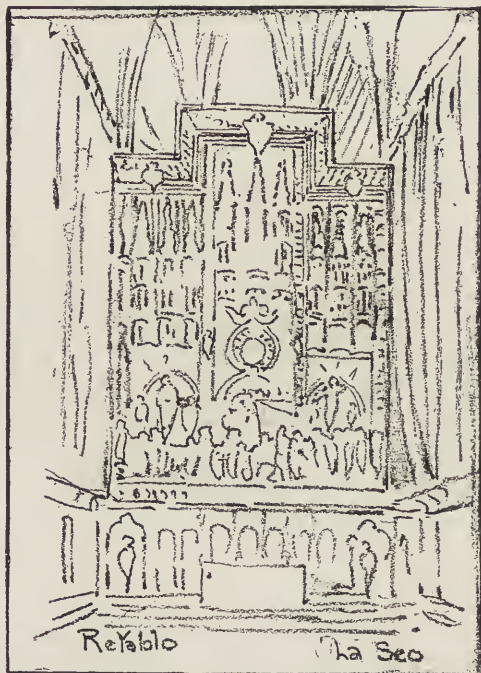 Retablo La Seo